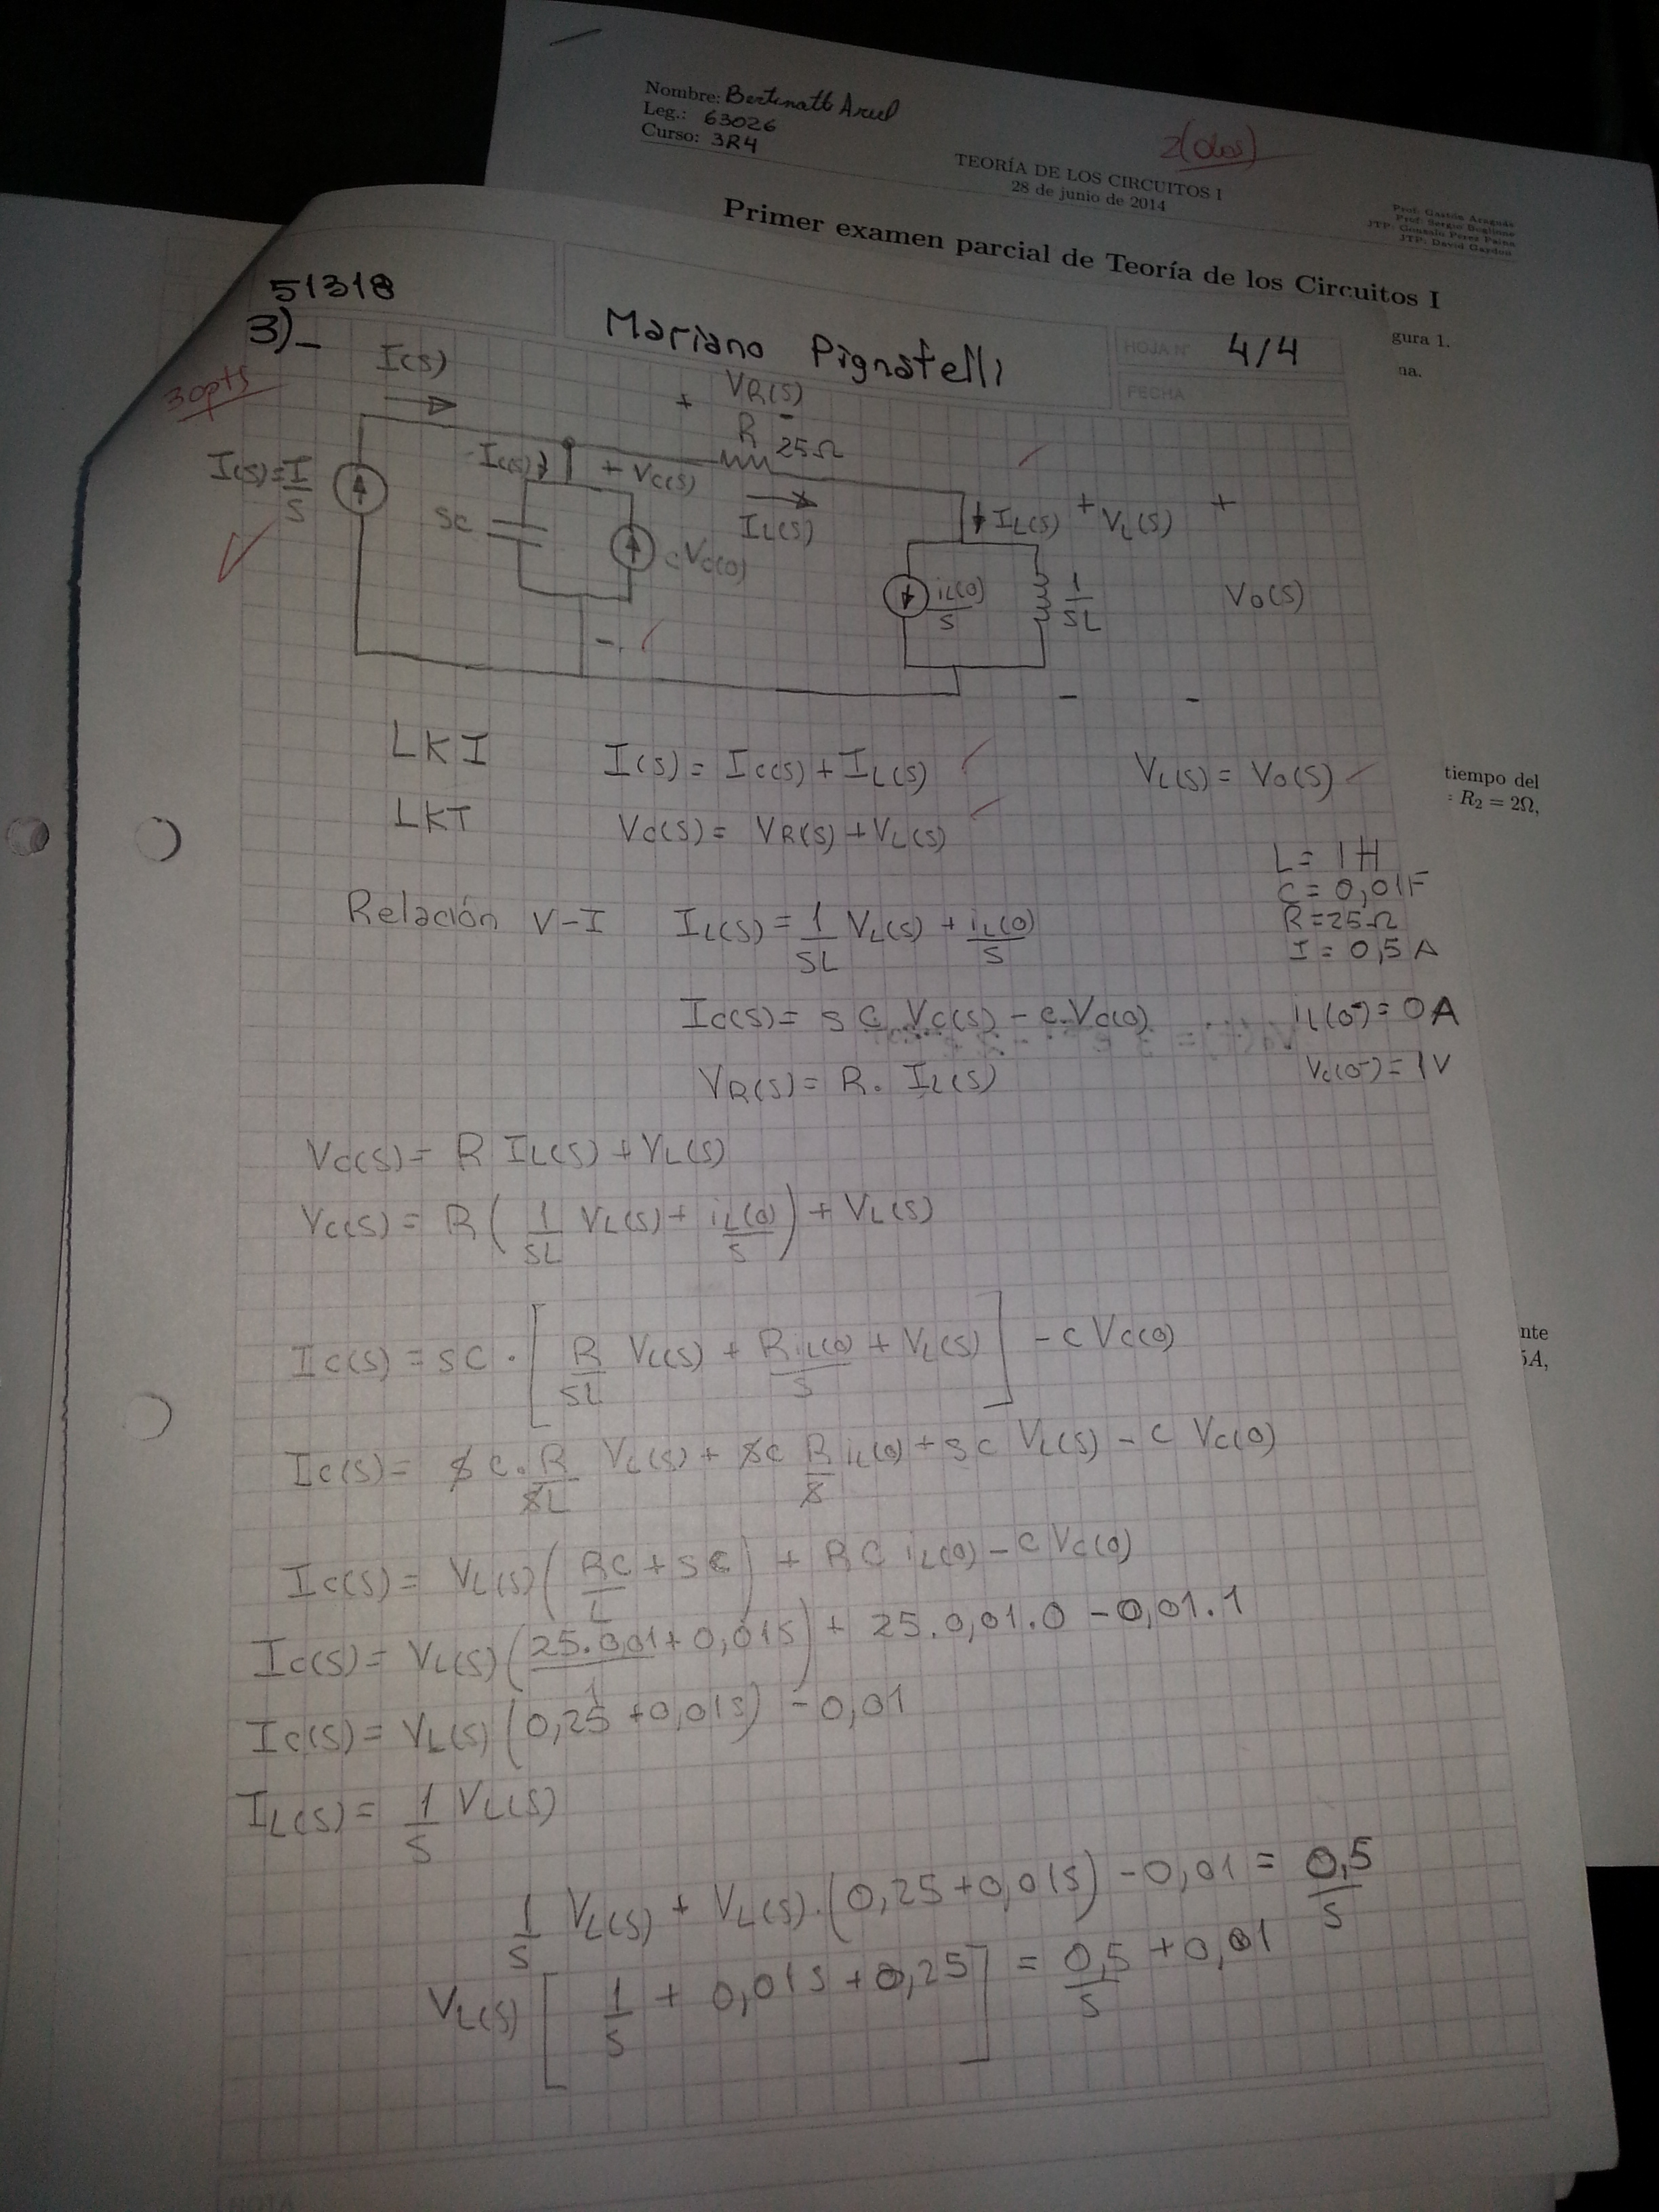 Nombre: Bertinatto Ariel
Leg.: 63026
Curso: 3R4
2(dos)
TEORÍA DE LOS CIRCUITOS I
28 de junio de 2014
Prof: Gastón Araguás
Prof: Sergio Boglione
JTP: Gonzalo Perez Paina
JTP: David Gaydou
Primer examen parcial de Teoría de los Circuitos I
gura 1.
na.
51318
Mariano Pignatelli
HOJA N° 4/4
FECHA
3)_
30pts
I(s)
+ VR(s) -
R 25Ω
I(s)=I/s
Ic(s)
+ Vc(s)
SC
cVc(0)
IL(s)
IL(s) + VL(s) +
iL(0)/s
1/SL
Vo(s)
-
- -
LKI I(s) = Ic(s) + IL(s) VL(s) = Vo(s)
tiempo del
: R2 = 2Ω,
LKT Vc(s) = VR(s) + VL(s)
L = 1H
C = 0,01F
R = 25Ω
I = 0,5 A
Relación V-I IL(s) = 1/SL VL(s) + iL(0)/s
Ic(s) = s C Vc(s) - c.Vc(0) iL(0-) = 0A
VR(s) = R. IL(s) Vc(0-) = 1V
Vc(s) = R IL(s) + VL(s)
Vc(s) = R ( 1/SL VL(s) + iL(0)/s ) + VL(s)
nte
5A,
Ic(s) = sC . [ R/SL VL(s) + R iL(0)/s + VL(s) ] - c Vc(0)
Ic(s) = s c . R/SL VL(s) + sc R/s iL(0) + sc VL(s) - c Vc(0)
Ic(s) = VL(s) ( RC/L + sc ) + RC iL(0) - c Vc(0)
Ic(s) = VL(s) ( 25.0,01/1 + 0,01s ) + 25.0,01.0 - 0,01.1
Ic(s) = VL(s) ( 0,25 + 0,01s ) - 0,01
IL(s) = 1/s VL(s)
1/s VL(s) + VL(s).(0,25 + 0,01s) - 0,01 = 0,5/s
VL(s) [ 1/s + 0,01s + 0,25 ] = 0,5/s + 0,01
NOTA